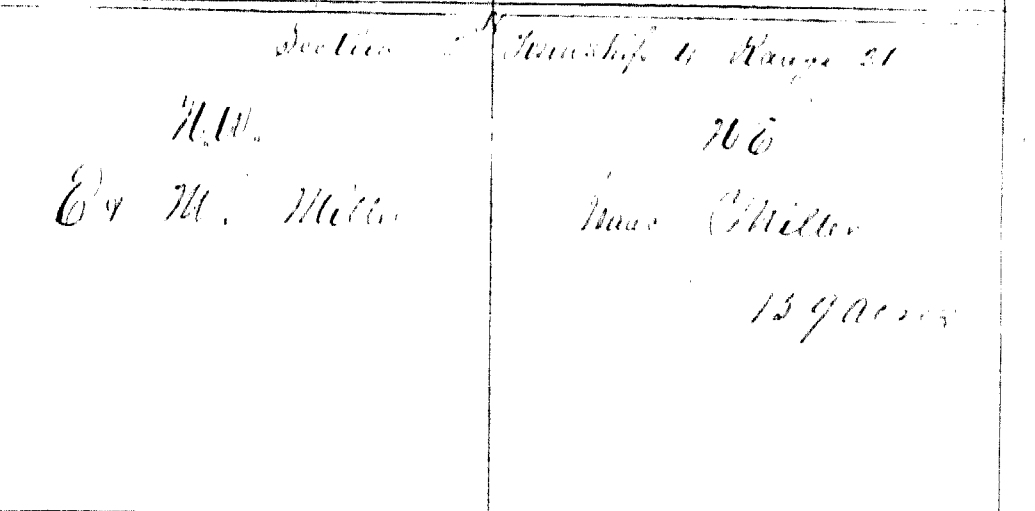 N
Section Township 4 Range 21
N.W.
N E
E & M. Miller
Isaac C Miller
159 Acres